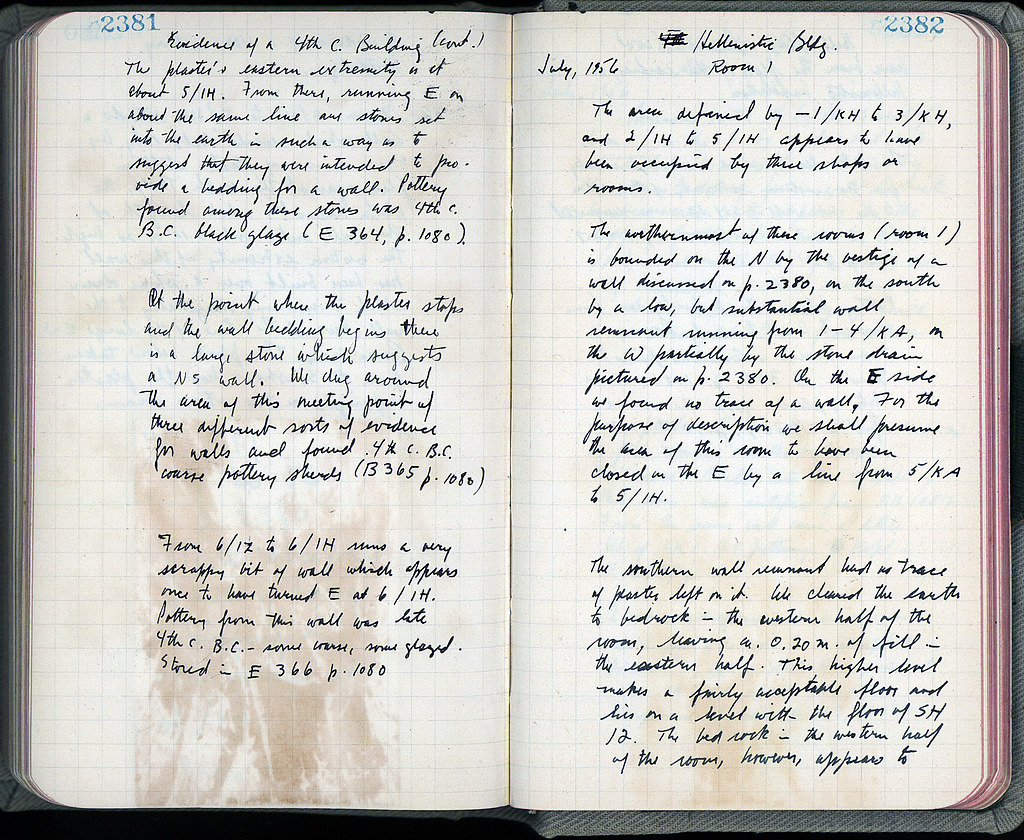 2381
Evidence of a 4th C. Building (cont.)
The plaster's eastern extremity is at
about 5/IH. From there, running E on
about the same line are stones set
into the earth in such a way as to
suggest that they were intended to pro-
vide a bedding for a wall. Pottery
found among these stones was 4th c.
B.C. black glaze (E 364, p. 1080).
At the point where the plaster stops
and the wall bedding begins there
is a large stone which suggests
a NS wall. We dug around
the area of this meeting point of
three different sorts of evidence
for walls and found 4th C. B.C.
coarse pottery sherds (B 365 p. 1080)
From 6/IZ to 6/IH runs a very
scrappy bit of wall which appears
once to have turned E at 6/IH.
Pottery from this wall was late
4th C. B.C. - some coarse, some glazed.
Stored in E 366 p. 1080
2382
Hellenistic Bldg.
July, 1956 Room 1
The area defined by -1/KH to 3/KH,
and 2/IH to 5/IH appears to have
been occupied by three shops or
rooms.
The northernmost of these rooms (room 1)
is bounded on the N by the vestige of a
wall discussed on p. 2380, on the south
by a low, but substantial wall
remnant running from 1-4/KA, on
the W partially by the stone drain
pictured on p. 2380. On the E side
we found no trace of a wall. For the
purpose of description we shall presume
the area of this room to have been
closed on the E by a line from 5/KA
to 5/IH.
The southern wall remnant had no trace
of plaster left on it. We cleared the earth
to bedrock in the western half of the
room, leaving ca. 0.20 m. of fill in
the eastern half. This higher level
makes a fairly acceptable floor and
lies on a level with the floor of SH
12. The bed rock in the western half
of the room, however, appears to